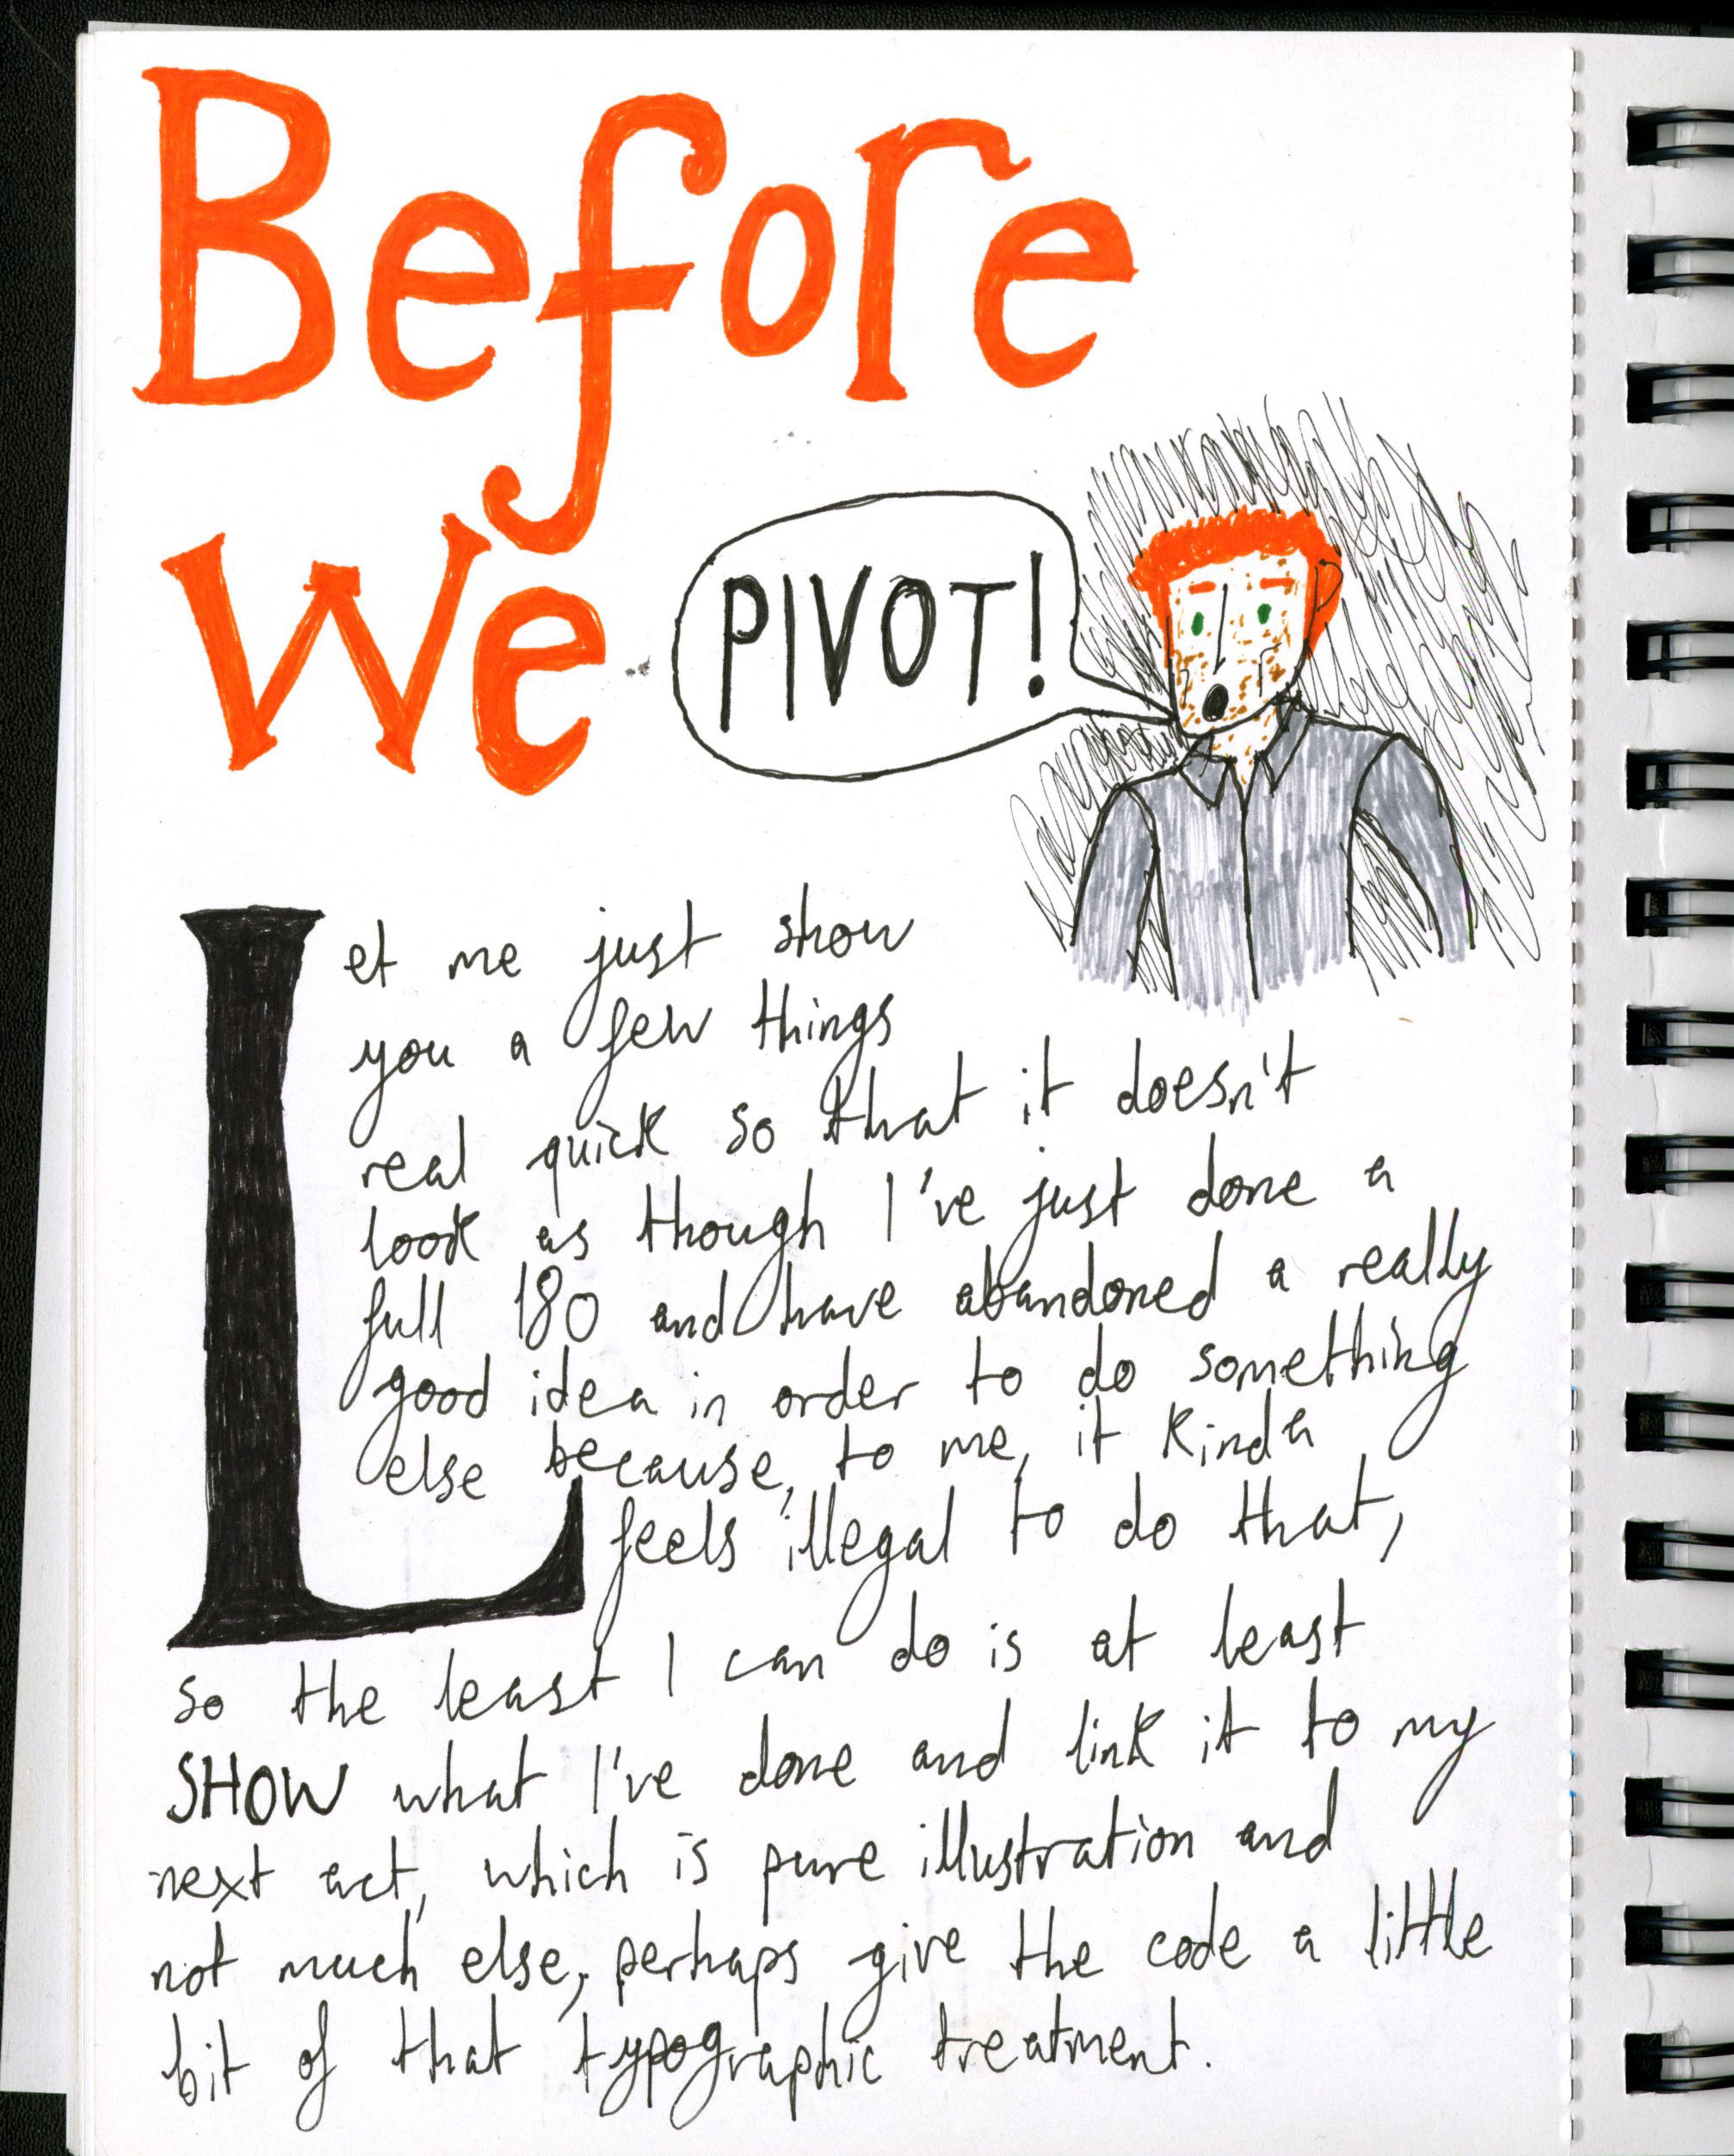 Before
We
PIVOT!
Let me just show
you a few things
real quick so that it doesn't
look as though I've just done a
full 180 and have abandoned a really
good idea in order to do something
else because, to me, it kinda
feels illegal to do that,
so the least I can do is at least
SHOW what I've done and link it to my
next act, which is pure illustration and
not much else, perhaps give the code a little
bit of that typographic treatment.